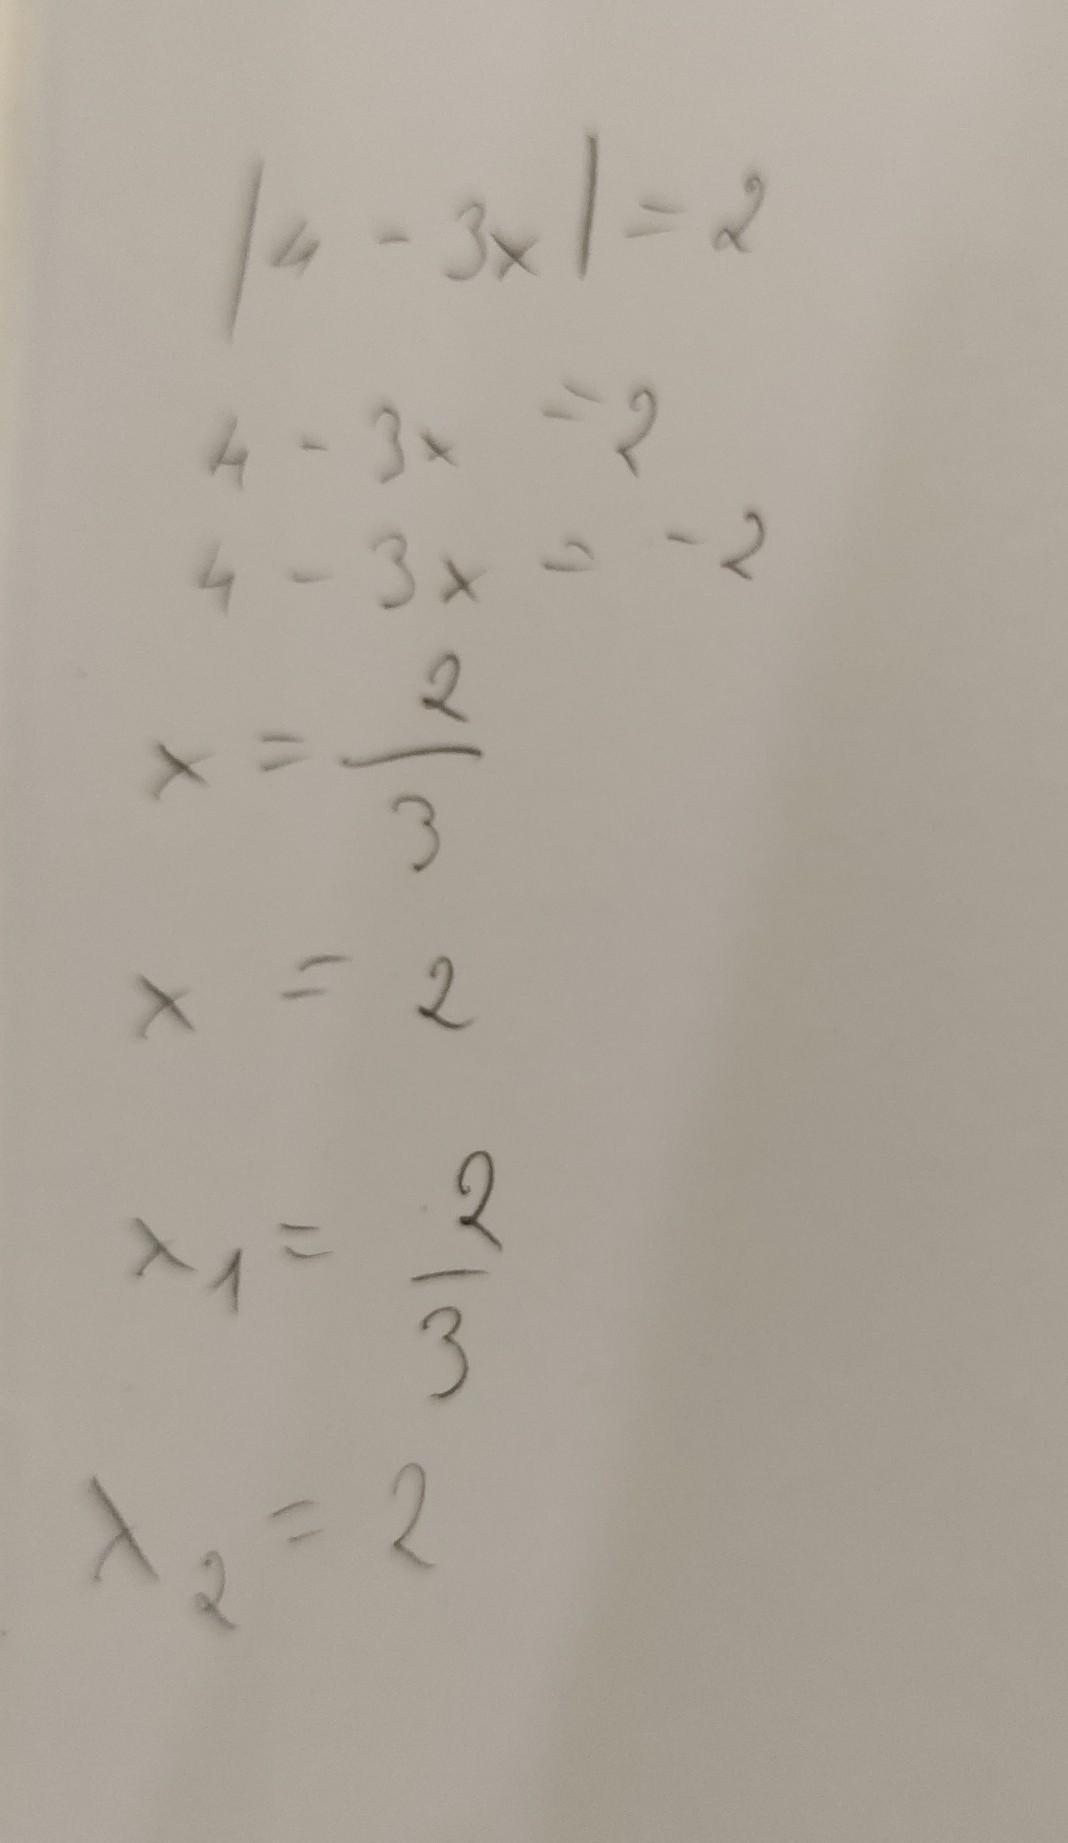 |4 - 3x| = 2
4 - 3x = 2
4 - 3x = - 2
x = 2/3
x = 2
x₁ = 2/3
x₂ = 2